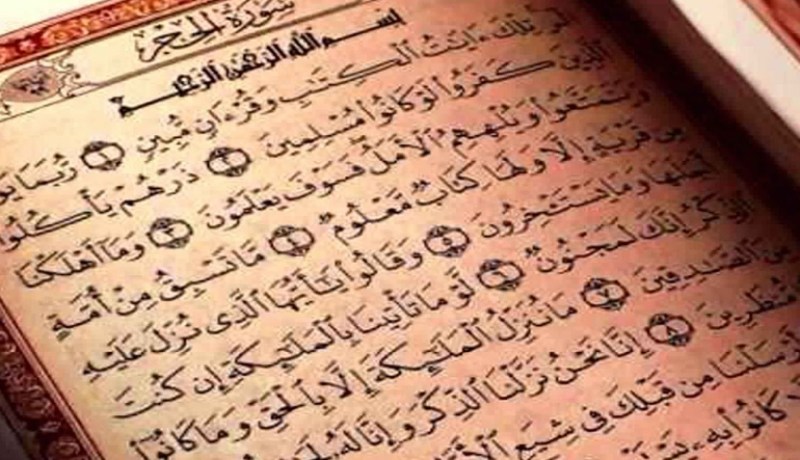 سُورَةُ الحِجر
بِسْمِ اللَّهِ الرَّحْمَٰنِ الرَّحِيمِ
الٓر تِلْكَ ءَايَٰتُ الْكِتَٰبِ وَقُرْءَانٍ مُّبِينٍ ١ رُّبَمَا
الَّذِينَ كَفَرُوا لَوْ كَانُوا مُسْلِمِينَ ٢ ذَرْهُمْ يَأْكُلُوا
وَيَتَمَتَّعُوا وَيُلْهِهِمُ الْأَمَلُ فَسَوْفَ يَعْلَمُونَ ٣ وَمَا أَهْلَكْنَا
مِن قَرْيَةٍ إِلَّا وَلَهَا كِتَابٌ مَّعْلُومٌ ٤ مَّا تَسْبِقُ مِنْ أُمَّةٍ
أَجَلَهَا وَمَا يَسْتَـْٔخِرُونَ ٥ وَقَالُوا يَٰٓأَيُّهَا الَّذِى نُزِّلَ عَلَيْهِ
الذِّكْرُ إِنَّكَ لَمَجْنُونٌ ٦ لَّوْ مَا تَأْتِينَا بِالْمَلَٰٓئِكَةِ إِن كُنتَ
مِنَ الصَّٰدِقِينَ ٧ مَا نُنَزِّلُ الْمَلَٰٓئِكَةَ إِلَّا بِالْحَقِّ وَمَا كَانُوٓا
مُّنظَرِينَ ٨ إِنَّا نَحْنُ نَزَّلْنَا الذِّكْرَ وَإِنَّا لَهُ
أَرْسَلْنَا مِن قَبْلِكَ فِى شِيَعِ
كَانُوا بِهِ